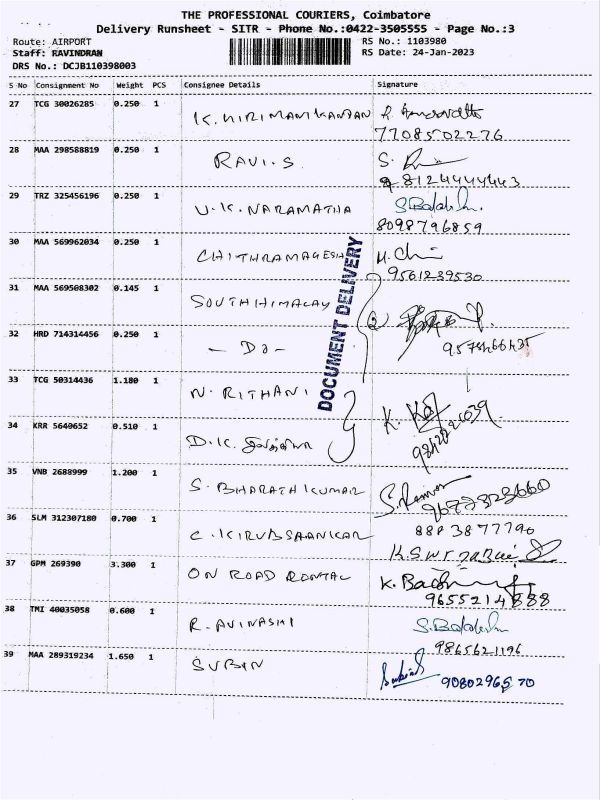 THE PROFESSIONAL COURIERS, Coimbatore
Delivery Runsheet - SITR - Phone No.:0422-3505555 - Page No.:3
Route: AIRPORT RS No.: 1103980
Staff: RAVINDRAN RS Date: 24-Jan-2023
DRS No.: DCJB110398003
S No Consignment No Weight PCS Consignee Details Signature
27 TCG 30026285 0.250 1 K. HIRIMANIKANDAN
7708502276
28 MAA 298588819 0.250 1 RAVI.S S.
8124444443
29 TRZ 325456196 0.250 1 V.K. NARAMATHA
8098796859
30 MAA 569962034 0.250 1 CHITHRAMAGESH
9561239530
31 MAA 569508302 0.145 1 SOUTH HIMALAY
32 HRD 714314456 0.250 1 - DO -
DOCUMENT DELIVERY
33 TCG 50314436 1.180 1 N. RITHANI K.
34 KRR 5640652 0.510 1 D.K.
35 VNB 2688999 1.200 1 S. BHARATH KUMAR
9677323660
36 SLM 312307180 0.700 1 C. KIRUBSAANKAR 8883877790
37 GPM 269390 3.300 1 ON ROAD RENTAL K.
9655214888
38 TMI 40035058 0.600 1 R. AVINASHI
9865621196
39 MAA 289319234 1.650 1 SUBIN
9080296570